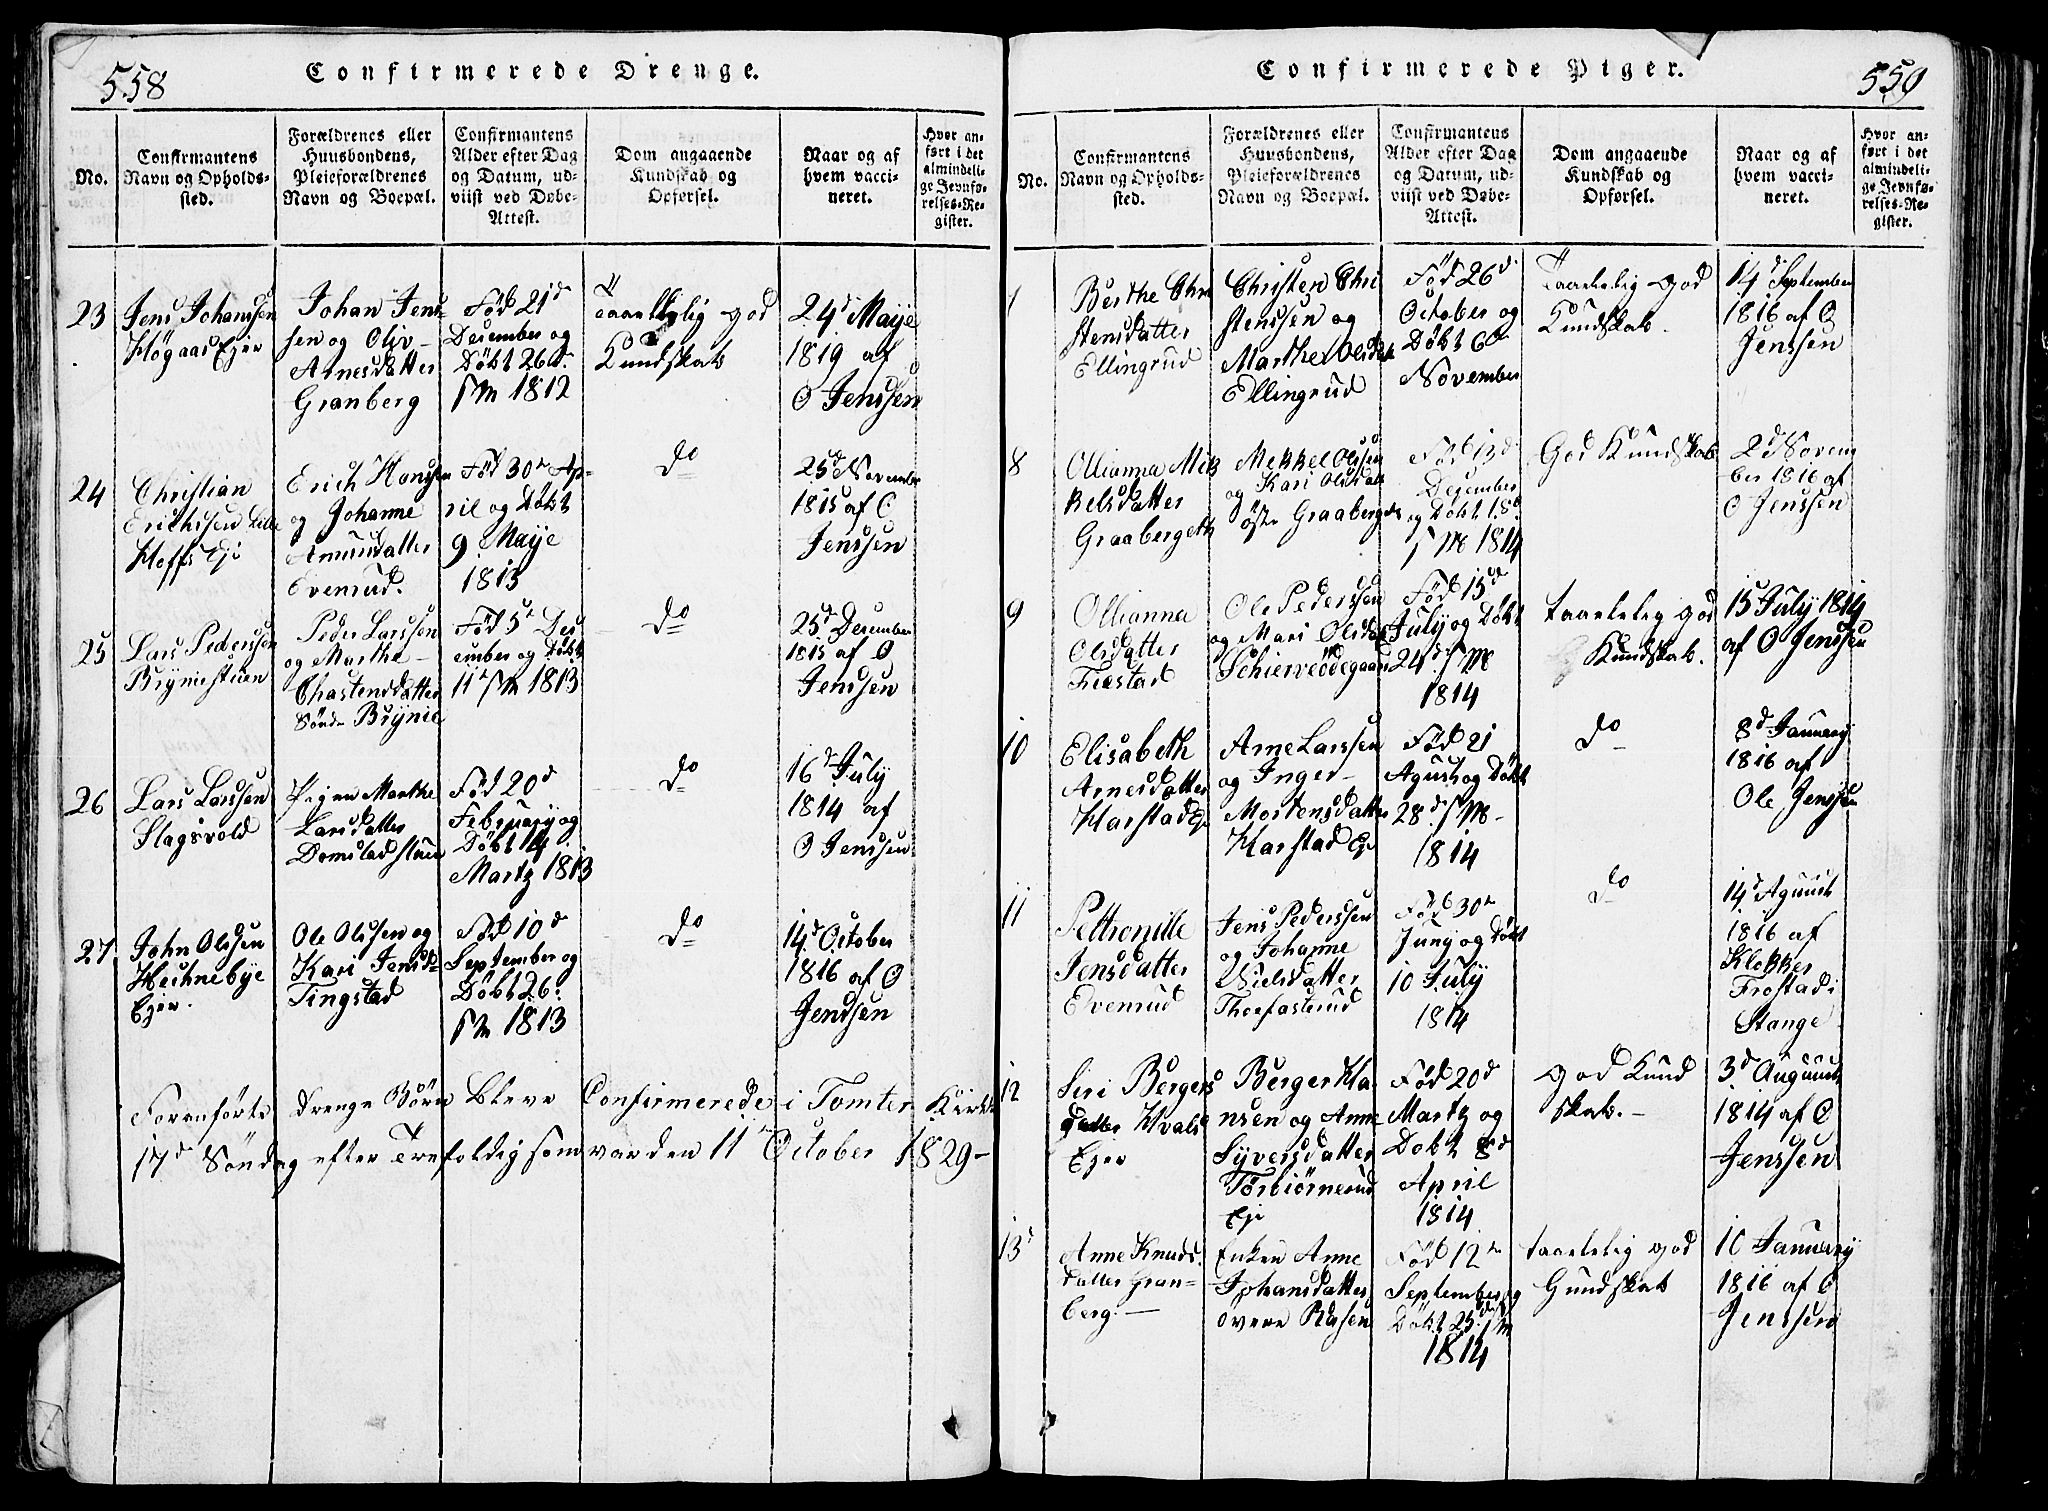 558
Confirmerede Drenge.
No.
Confirmantens
Navn og Opholds-
sted.
Forældrenes eller
Huusbondens,
Pleieforældrenes
Navn og Boepæl.
Confirmantens
Alder efter Dag
og Datum, ud-
viist ved Døbe-
Attest.
Dom angaaende
Kundskab og
Opførsel.
Naar og af
hvem vacci-
neret.
Hvor an-
ført i det
almindeli-
ge Jevnfø-
relses-Re-
gister.
23
Jens Johanssen
Høgaas Ejer
Johan Jens-
sen og Oliv-
Arnesdatter
Granberg
Fød 21d
December og
Døbt 26d.
S M 1812
Taarllig god
Kundskab
24d Maye
1819 af
O Jenssen
24
Christian
Erichssen Lille
Hoffs Eje
Erich Hanssen
og Johanne
Amunsdatter
Evenrud.
Fød 30te Ap-
ril og Døbt
9. Maye
1813
do
25de November
1815 af O
Jenssen
25
Lars Pederssen
Bryniestuen
Peder Larssen
og Marthe-
Chastensdatter
Sønde Brynie
Fød 5te Des
ember og Døbt
11te S M 1813
do
25d December
1815 af O
Jenssen
26
Lars Larssen
Slagsvold
Pigen Marthe
Larsdatter
Domstad stuen
Fød 20d
February og
Døbt 14
Martz 1813
do
16d July
1814 af
O Jenssen
27.
John Olssen
Heknebye
Ejer.
Ole Olssen og
Kari Jensd-
Tingstad
Fød 10d
September og
Døbt 26.
S M 1813
do
14d October
1816 af O
Jenssen
Foranførte Drenge Børn Bleve Confirmerede i Tomter Kirke
17d Søndag efter Trefoldig som var den 11te October 1829-
559
Confirmerede Piger.
No.
Confirmantens
Navn og Opholds-
sted.
Forældrenes eller
Huusbondens,
Pleieforældrenes
Navn og Boepæl.
Confirmantens
Alder efter Dag
og Datum, ud-
viist ved Døbe-
Attest.
Dom angaaende
Kundskab og
Opførsel.
Naar og af
hvem vacci-
neret.
Hvor an-
ført i det
almindeli-
ge Jevnfø-
relses-Re-
gister.
7
Berthe Chri
stensdatter
Ellingrud
Christen Chri
stenssen og
Marthe Olsdat
Ellingrud
Fød 26d
October og
Døbt 6d
November
Taarlelig god
Kundskab.
14d September
1816 af O
Jenssen
8
Ollianna Mik
kelsdatter
Graabergeth
Mekkel Olssen
og Kari Olsdat
østre Graaberget
Fød 13d
December
og Døbt 18d.
S M 1814
God Kundskab
2d Novem
ber 1816 af
O Jenssen
9
Ollianna
Olsdatter
Fiestad
Ole Pederssen
og Mari Olsdat
Schierveødegaard
Fød 15de
July og Døbt
24d S M
1814
taarlelig god
Kundskab.
15 July 1814
af O Jenssen
10
Elisabeth
Arnesdatter
Harstad Eje
Arne Larssen
og Inger-
Mortensdatter
Harstad Eje
Fød 21
Agust og Døbt
28d. S M-
1814
do
8d January
1816 af
Ole Jenssen
11
Pettronille
Jensdatter
Evenrud
Jens Pederssen
og Johanne
Nielsdatter
Thorfasterud
Fød 30te
Juny og Døbt
10 July
1814
do
14d Aguust
1816 af
Klokker
Frostad i
Stange
12
Siri Bergers
datter Hvals
Ejer
Berger Ha
nsen og Anne
Syversdatter
Torbiørnerud
Eje
Fød 20d
Martz og
Dobt 8d
April
1814
god Kund
skab.-
3d Auguust
1814 af O
Jenssen
13d
Anne Knuds
datter Gran-
berg.-
Enken Anne
Johansdatter
øvere Rusen
Fød 12te
September og
Døbt 25de S M
1814
taarlelig god
Gundskab
10 January
1816 af O
Jenssen